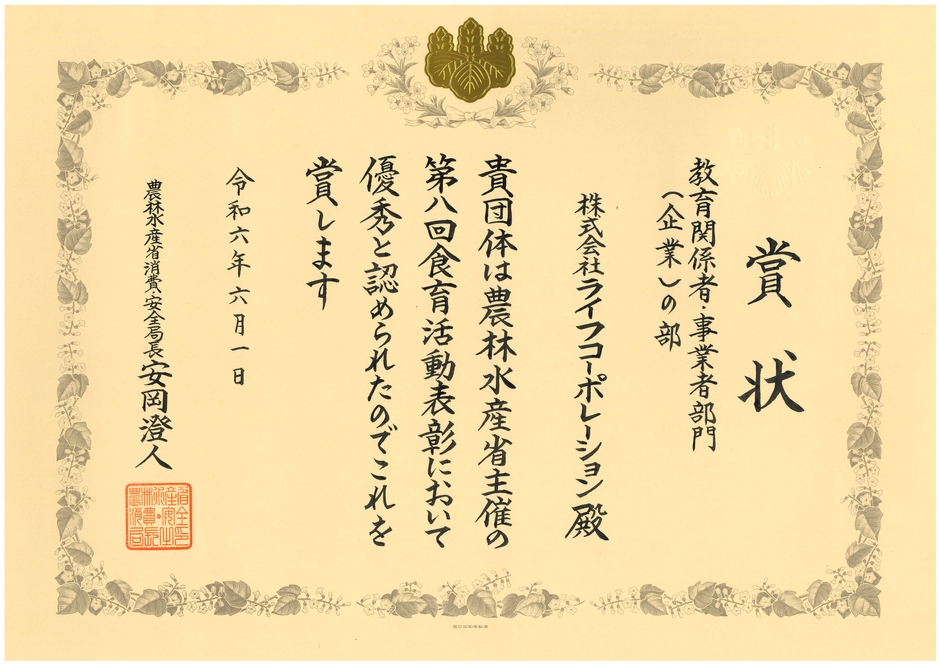 賞状
教育関係者・事業者部門
（企業）の部
株式会社ライフコーポレーション殿
貴団体は農林水産省主催の
第八回食育活動表彰において
優秀と認められたのでこれを
賞します
令和六年六月一日
農林水産省消費・安全局長安岡澄人